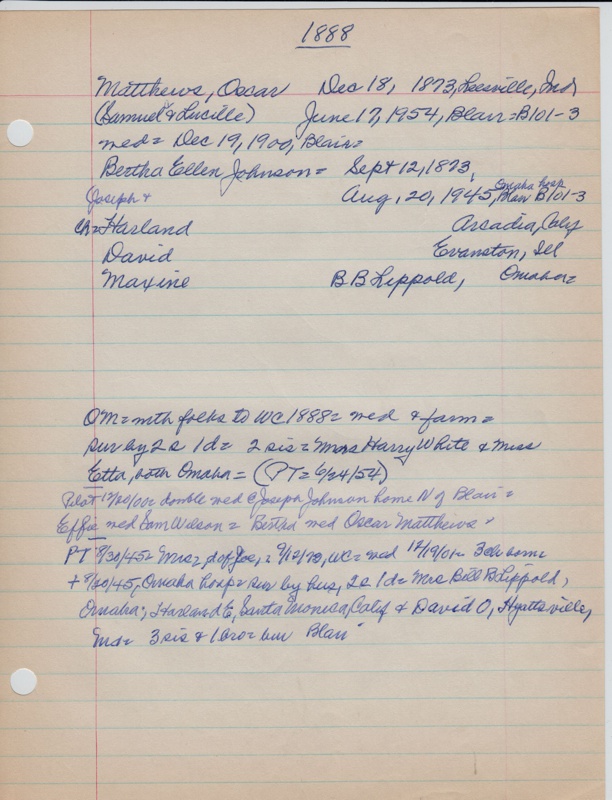 1888
Matthews, Oscar Dec 18, 1873, Leesville, Ind
(Samuel & Lucille) June 17, 1954, Blair = B101-3
med = Dec 19, 1900, Blair =
Bertha Ellen Johnson = Sept 12, 1873,
Omaha hosp
Joseph + Aug, 20, 1945, Blair B101-3
ch = Harland Arcadia, Caly
David Evanston, Ill
Maxine B B Lippold, Omaha =
OM = mth folks to WC 1888 = med & farm =
sur by 2s 1d = 2 sis = Mrs Harry White & Miss
Etta, both Omaha = (PT = 6/24/54)
Pilot 12/20/00 = double wed @ Joseph Johnson home N of Blair =
Effie wed Sam Wilson = Bertha wed Oscar Matthews =
PT 8/30/45 = Mrs = d of Jos, = 9/12/73, WC = wed 12/19/01 = 3 ch home
+ 8/20/45, Omaha hosp = sur by hus, 2s 1d = Mrs Bill B Lippold,
Omaha; Harland E, Santa Monica, Calif & David O, Hyattsville,
Md = 3 sis & 1 bro = bur Blair